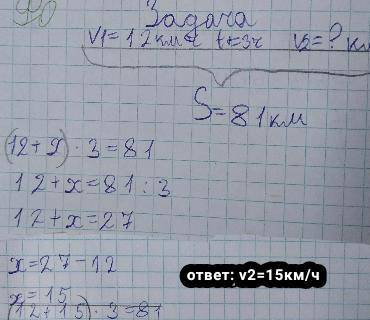 Задача
V1=12км/ч t=3ч V2=? км
S=81км
(12+x)·3=81
12+x=81:3
12+x=27
x=27-12
x=15
(12+15)·3=81
ответ: v2=15км/ч